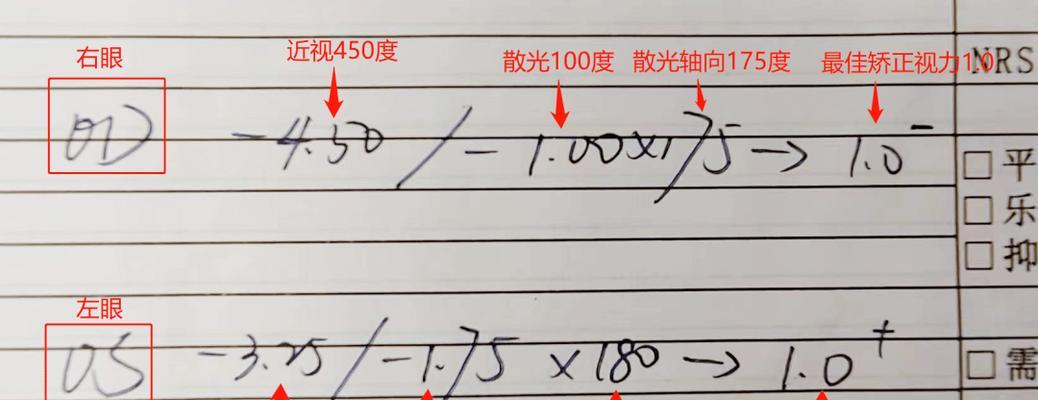 右眼 近视450度 散光100度 散光轴向175度 最佳矫正视力1.0 NRS
OD -4.50 / -1.00×175 → 1.0⁻
□ 平
□ 乐
□ 抑
左眼
OS -3.25 / -1.75 ×180 → 1.0⁺ □ 需